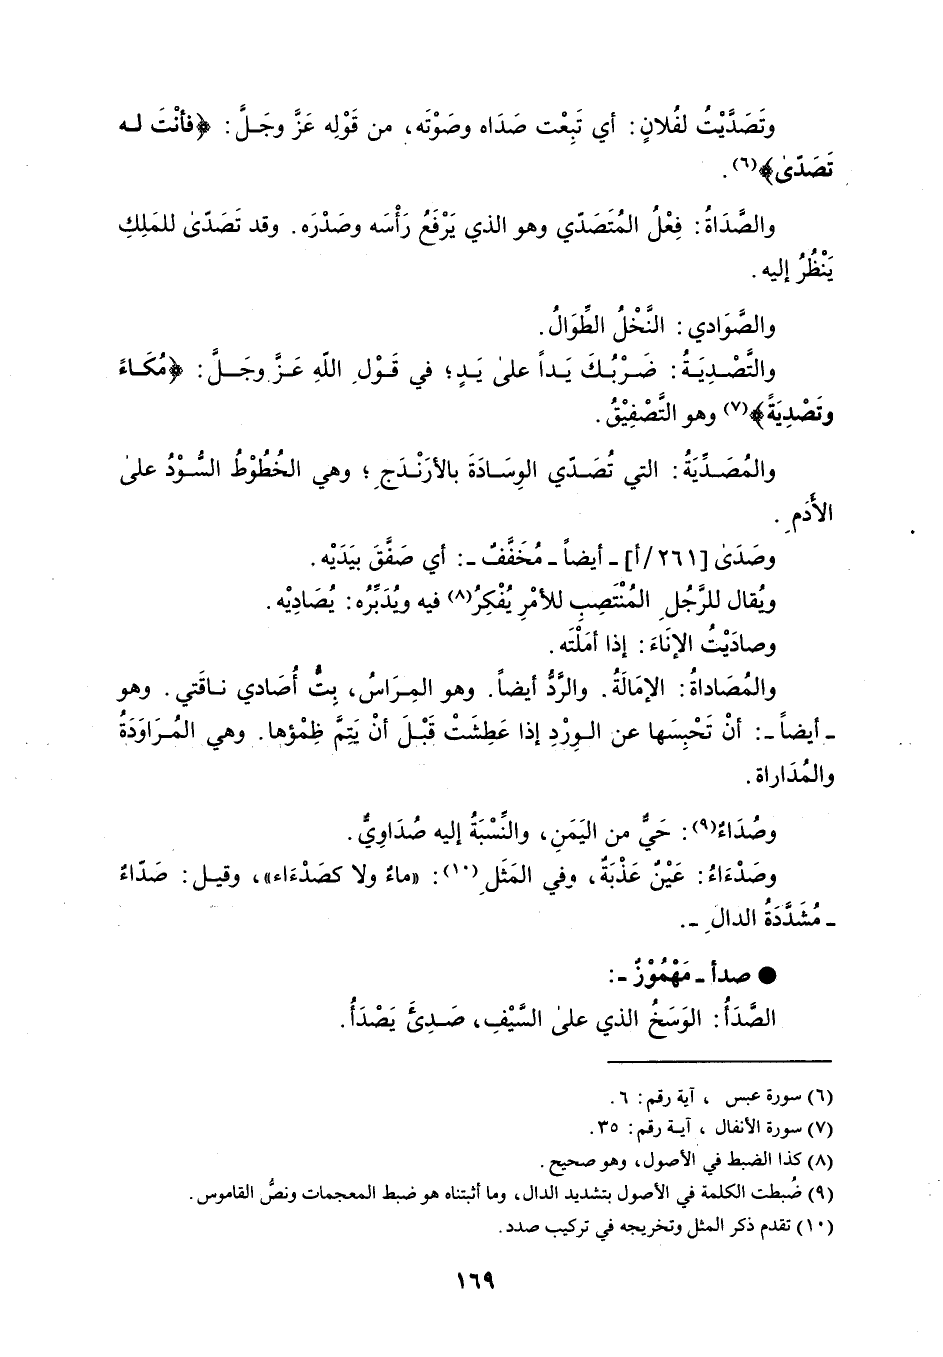 وتَصَدَّيْتُ لفُلانٍ: أي تَبِعْت صَدَاه وصَوْتَه، من قَوْلِه عَزَّ وجَلَّ: ﴿فأنْتَ له
تَصَدّىٰ﴾(٦).
والصَّدَاةُ: فِعْلُ المُتَصَدّي وهو الذي يَرْفَعُ رَأْسَه وصَدْرَه. وقد تَصَدّىٰ للمَلِكِ
يَنْظُرُ إليه.
والصَّوَادي: النَّخْلُ الطِّوَالُ.
والتَّصْدِيَةُ: ضَرْبُكَ يَداً علىٰ يَدٍ؛ في قَوْلِ اللّهِ عَزَّ وجَلَّ: ﴿مُكَاءً
وتَصْدِيَةً﴾(٧) وهو التَّصْفِيْقُ.
والمُصَدِّيَةُ: التي تُصَدّي الوِسَادَةَ بالأَرَنْدَجِ؛ وهي الخُطُوْطُ السُّوْدُ علىٰ
الأَدَمِ.
وصَدَىٰ [٢٦١/أ] ـ أيضاً ـ مُخَفَّفٌ ـ: أي صَفَّقَ بيَدَيْه.
ويُقال للرَّجُلِ المُنْتَصِبِ للأمْرِ يُفْكِرُ(٨) فيه ويُدَبِّرُه: يُصَادِيْه.
وصادَيْتُ الإنَاءَ: إذا أمَلْتَه.
والمُصَاداةُ: الإمَالَةُ. والرَّدُّ أيضاً. وهو المِرَاسُ، بِتُّ أُصَادي ناقَتي. وهو
ـ أيضاً ـ: أنْ تَحْبِسَها عن الوِرْدِ إذا عَطِشَتْ قَبْلَ أنْ يَتِمَّ ظِمْؤها. وهي المُرَاوَدَةُ
والمُدَاراة.
وصُدَاءٌ(٩): حَيٌّ من اليَمَنِ، والنِّسْبَةُ إليه صُدَاوِيٌّ.
وصَدْءَاءُ: عَيْنٌ عَذْبَةٌ، وفي المَثَلِ(١٠): «ماءٌ ولا كصَدْءَاء»، وقيل: صَدّاءُ
ـ مُشَدَّدَةُ الدالِ ـ.
● صدأ ـ مَهْمُوْزٌ ـ:
الصَّدَأُ: الوَسَخُ الذي علىٰ السَّيْفِ، صَدِئَ يَصْدَأُ.
(٦) سورة عبس ، آية رقم: ٦.
(٧) سورة الأنفال ، آية رقم: ٣٥.
(٨) كذا الضبط في الأصول، وهو صحيح.
(٩) ضُبطت الكلمة في الأصول بتشديد الدال، وما أثبتناه هو ضبط المعجمات ونصُّ القاموس.
(١٠) تقدم ذكر المثل وتخريجه في تركيب صدد.
١٦٩